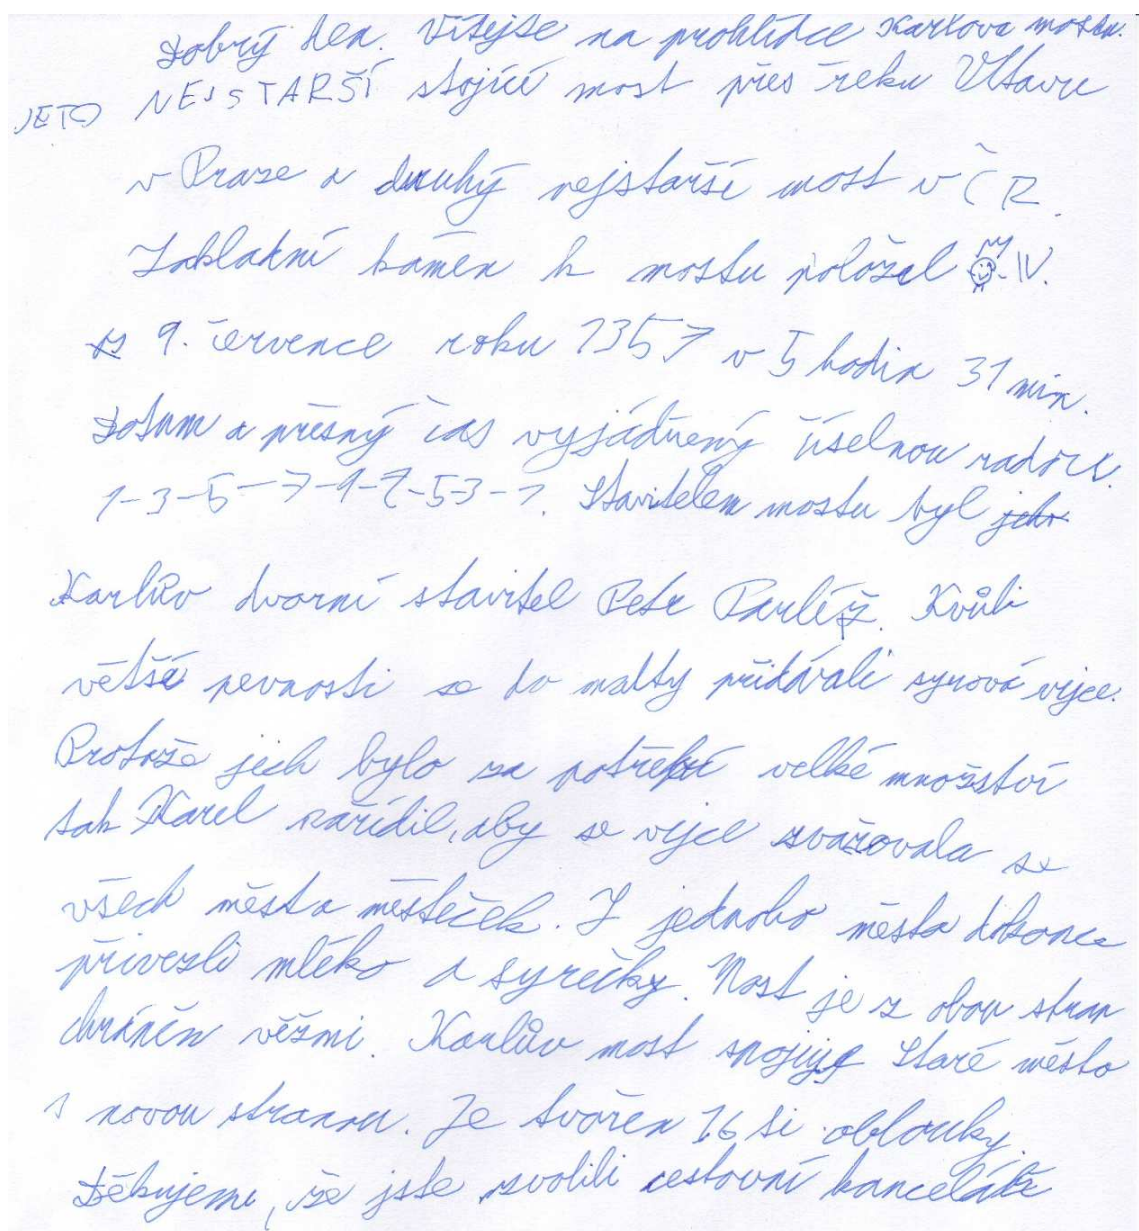 Dobrý den. Vítejte na prohlídce Karlova mostu.
JETO NEJSTARŠÍ stojící most přes řeku Vltavu
v Praze a druhý nejstarší most v ČR.
Zakladní kámen k mostu položel IV.
9. července roku 1357 v 5 hodin 31 min.
Datum a přesný čas vyjádřený číselnou radou
1-3-5-7-9-7-5-3-1. Stavitelem mostu byl jeho
Karlův dvorní stavitel Petr Parléř. Kvůli
větší pevnosti se do malty přidávali syrová vejce.
Protože jich bylo za potřebí velké množství
tak Karel nařídil, aby se vejce svážovala ze
všech měst a městeček. Z jednoho města dokonce
přivezli mléko a syrečky. Most je z obou stran
chráněn věžmi. Karlův most spojuje Staré město
s novou stranou. Je tvořen 16 ti oblouky.
Děkujeme, že jste zvolili cestovní kancelář